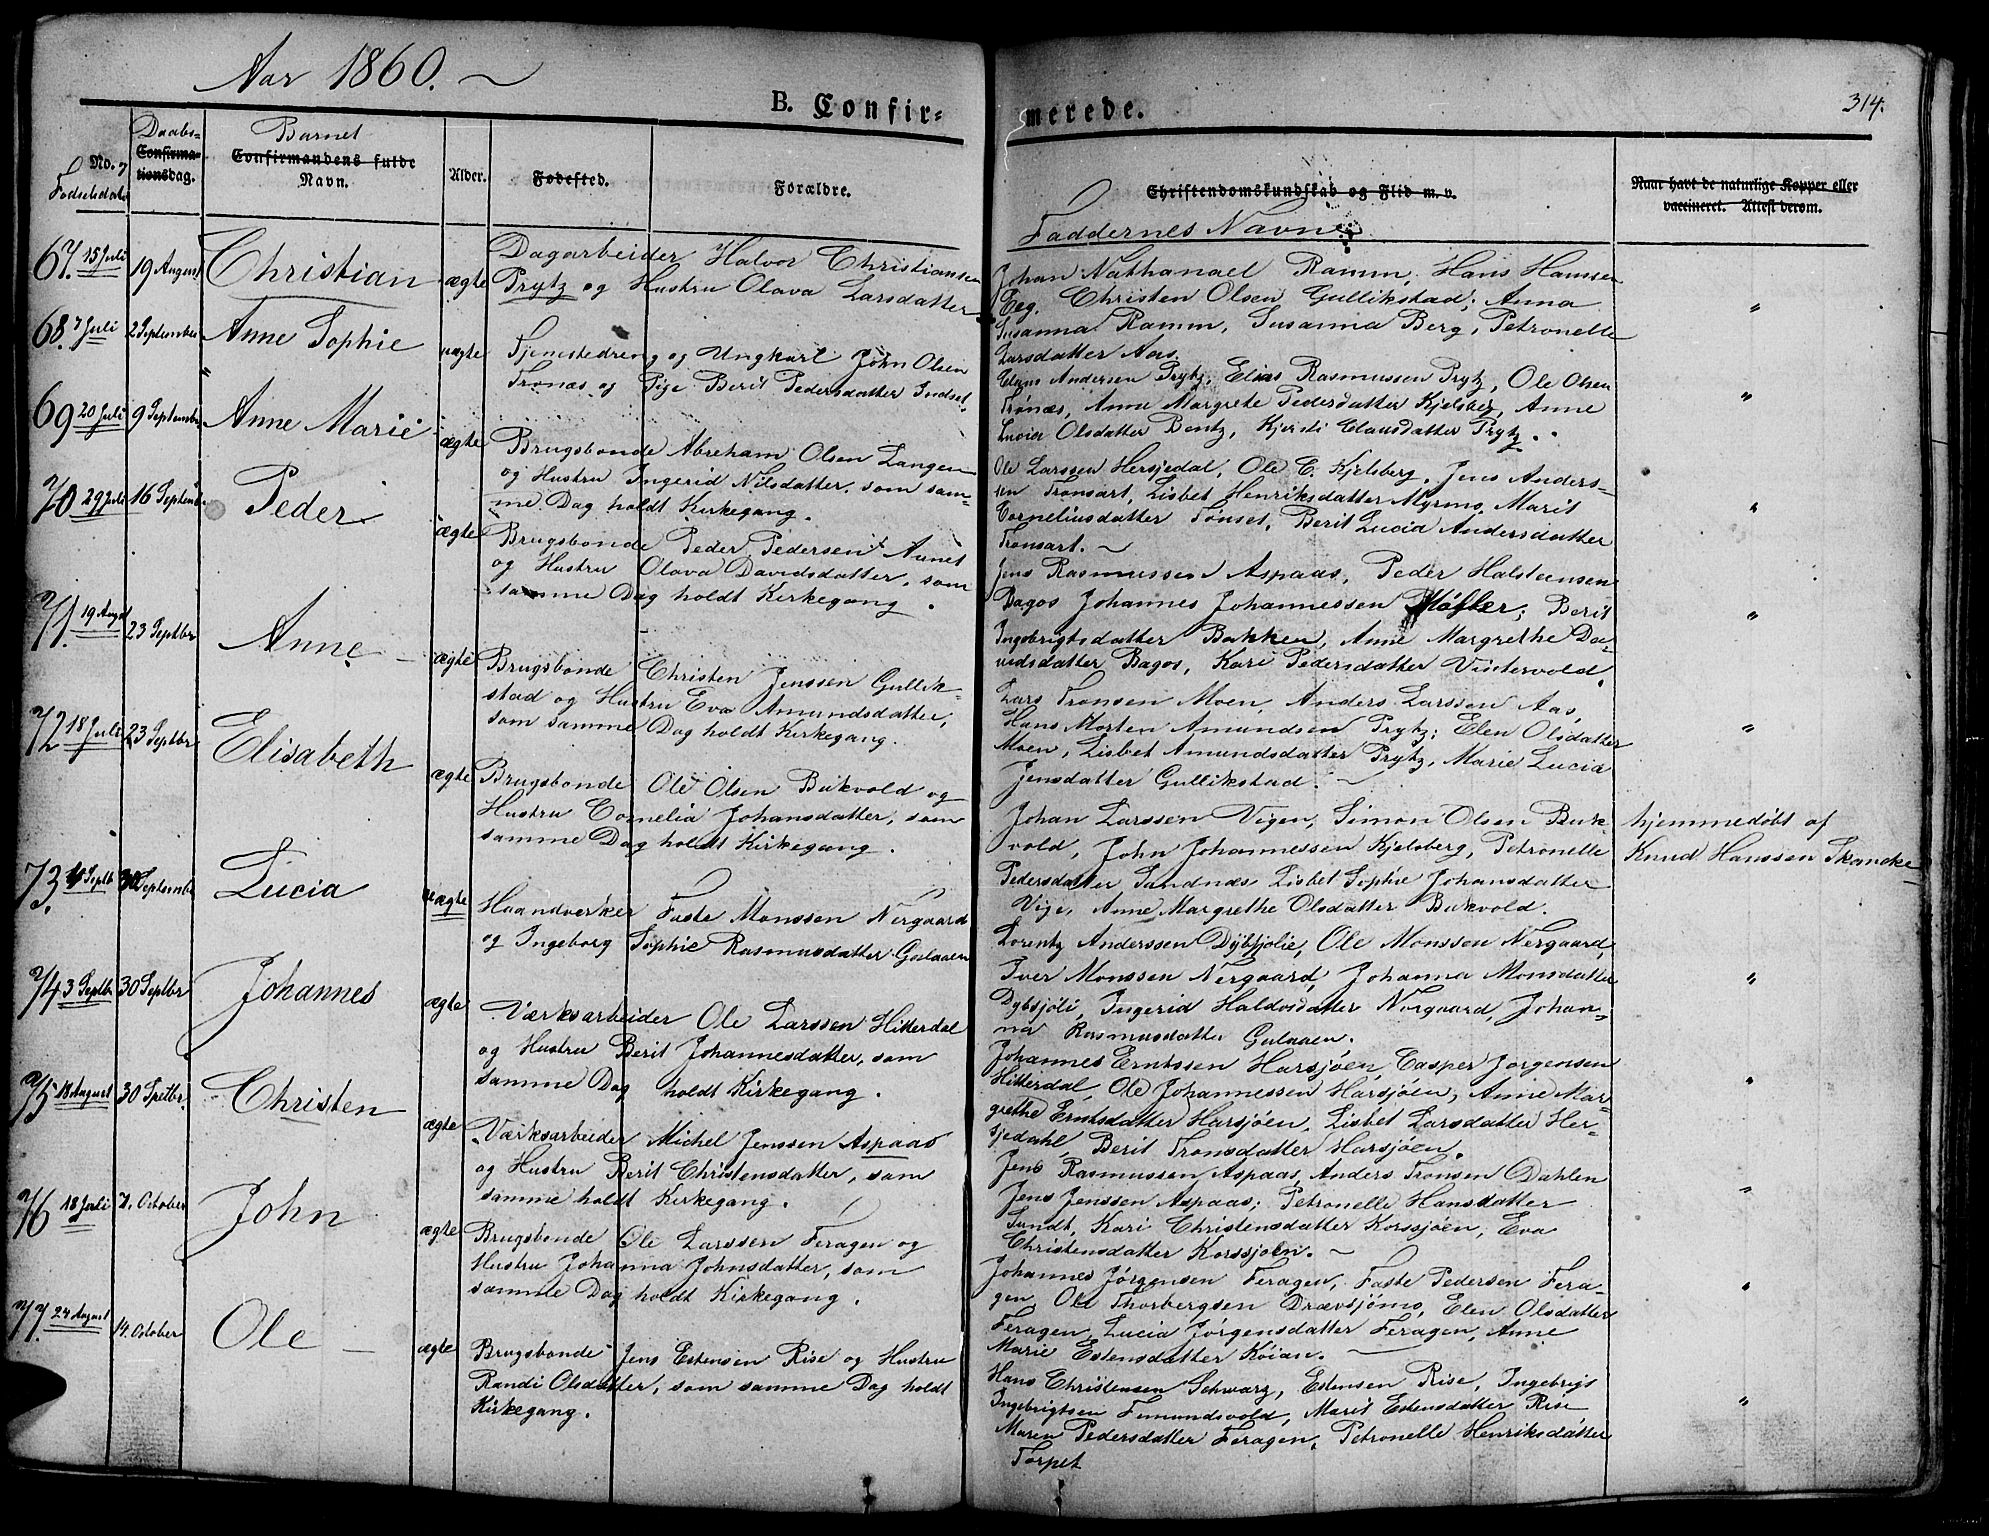 Aar 1860.
B. Confir=
merede.
314.
No. 7
Fødselsdato
Daabs-
Confirma-
tionsdag.
Barnet
Confirmandens fulde
Navn.
Alder.
Fødested.
Forældre.
Christendomskundskab og Flid m. v.
Faddernes Navne
Naar havt de naturlige Kopper eller
vaccineret. Attest derom.
67. 15 Juli
19 August
Christian
ægte
Dagarbeider Halvor Christiansen
Prytz og Hustru Olava Larsdatter
Johan Nathanael Ramm, Hans Hansen
Eeg, Christen Olsen Gullikstad; Anna
Susanna Ramm, Susanna Berg, Petronelle
Larsdatter Aas.
"
68. 7 Juli
2 September
Anne Sophie
uægte
Tjenestedreng og Ungkarl John Olsen
Tronæs og Pige Berit Pedersdatter Indset.
Claus Andersen Prytz, Elias Rasmussen Prytz, Ole Olsen
Trønæs, Anne Margrete Pedersdatter Kjelsberg, Anne
Lucia Olsdatter Bentz, Kjersti Clausdatter Prytz.
"
69 20 Juli
9 Septembr
Anne Marie
ægte
Brugsbonde Abreham Olsen Langen
og Hustru Ingerid Nilsdatter, som sam-
me Dag holdt Kirkegang.
Ole Larssen Hersjedal, Ole C. Kjelsberg, Jens Anders-
sen Tronsart, Lisbet Henriksdatter Myrmo, Marit
Corneliusdatter Tønset, Berit Lucia Andersdatter
Tronsart.
"
70 29 Juli
16 Septembr
Peder
ægte
Brugsbonde Peder Pedersen Aunet
og Hustru Olava Davidsdatter, som
samme Dag holdt Kirkegang.
Jens Rasmussen Aspaas, Peder Halsteensen
Bagos Johannes Johannessen Møller; Berit
Ingebrigtsdatter Bakken, Anne Margrethe Da-
vidsdatter Bagos, Kari Pedersdatter Vintervold.
"
71. 19 Augst
23 Septbr
Anne
ægte
Brugsbonde Christen Jenssen Gullik-
stad og Hustru Eva Amundsdatter,
som samme Dag holdt Kirkegang.
Lars Tronsen Moen, Anders Larssen Aas,
Hans Morten Amundsen Prytz; Elen Olsdatter
Moen, Lisbet Amundsdatter Prytz, Marie Lucia
Jensdatter Gullikstad.
"
72 18 Juli
23 Septbr
Elisabeth
ægte
Brugsbonde Ole Olsen Bukvold og
Hustru Cornelia Johansdatter, som
samme Dag holdt Kirkegang.
Johan Larssen Vigen, Simon Olsen Buk
vold, John Johannessen Kjelsberg, Petronelle
Pedersdatter Sandnæs Lisbet Sophie Johansdatter
Vige, Anne Margrethe Olsdatter Bukvold.
hjemmedøbt af
Knud Hanssen Skancke
73. Septb
30 Septembr
Lucia
uægte
Haandverker Faste Monssen Nergaard
og Ingeborg Sophie Rasmusdatter Gulaaen
Lorentz Anderssen Dybsjølie, Ole Monssen Nergaard,
Iver Monssen Nergaard, Johanna Monsdatter
Dybsjöli, Ingerid Haldosdatter Nergaard, Johan-
na Rasmusdatter Gulaaen.
"
74 3 Septbr
30 Septbr
Johannes
ægte
Værksarbeider Ole Larssen Hitterdal
og Hustru Berit Johannesdatter, som
samme Dag holdt Kirkegang.
Johannes Erntssen Harsjöen, Casper Jørgensen
Hitterdal, Ole Johannessen Harsjöen, Anne Mar-
grethe Erntsdatter Harsjöen, Lisbet Larsdatter Her-
sjedahl, Berit Tronsdatter Harsjöen.
"
75 18 August
30 Septbr.
Christen
ægte
Værksarbeider Michel Jenssen Aspaas
og Hustru Berit Christensdatter, som
samme holdt Kirkegang.
Jens Rasmussen Aspaas, Anders Tronsen Dahlen
Jens Jenssen Aspaas; Petronelle Hansdatter
Sundt, Kari Christensdatter Korssjöen, Eva
Christensdatter Korssjoen.
"
76 18 Juli
7. October
John
ægte
Brugsbonde Ole Larssen Feragen og
Hustru Johanna Johnsdatter, som
samme Dag holdt Kirkegang.
Johannes Jörgensen Feragen, Faste Pedersen Fera-
gen Ole Thorbergsen Drævsjömo, Elen Olsdatter
Feragen, Lucia Jörgensdatter Feragen, Anne
Marie Estensdatter Köian.
"
77. 24 August
14. October
Ole
ægte
Brugsbonde Jens Estensen Rise og Hustru
Randi Olsdatter, som samme Dag holdt
Kirkegang.
Hans Christensen Schwarz, Estensen Rise, Ingebrigt
Ingebrigtsen Femundsvold, Marit Estensdatter Rise
Maren Pedersdatter Feragen, Petronelle Henriksdatter
Torpet
"